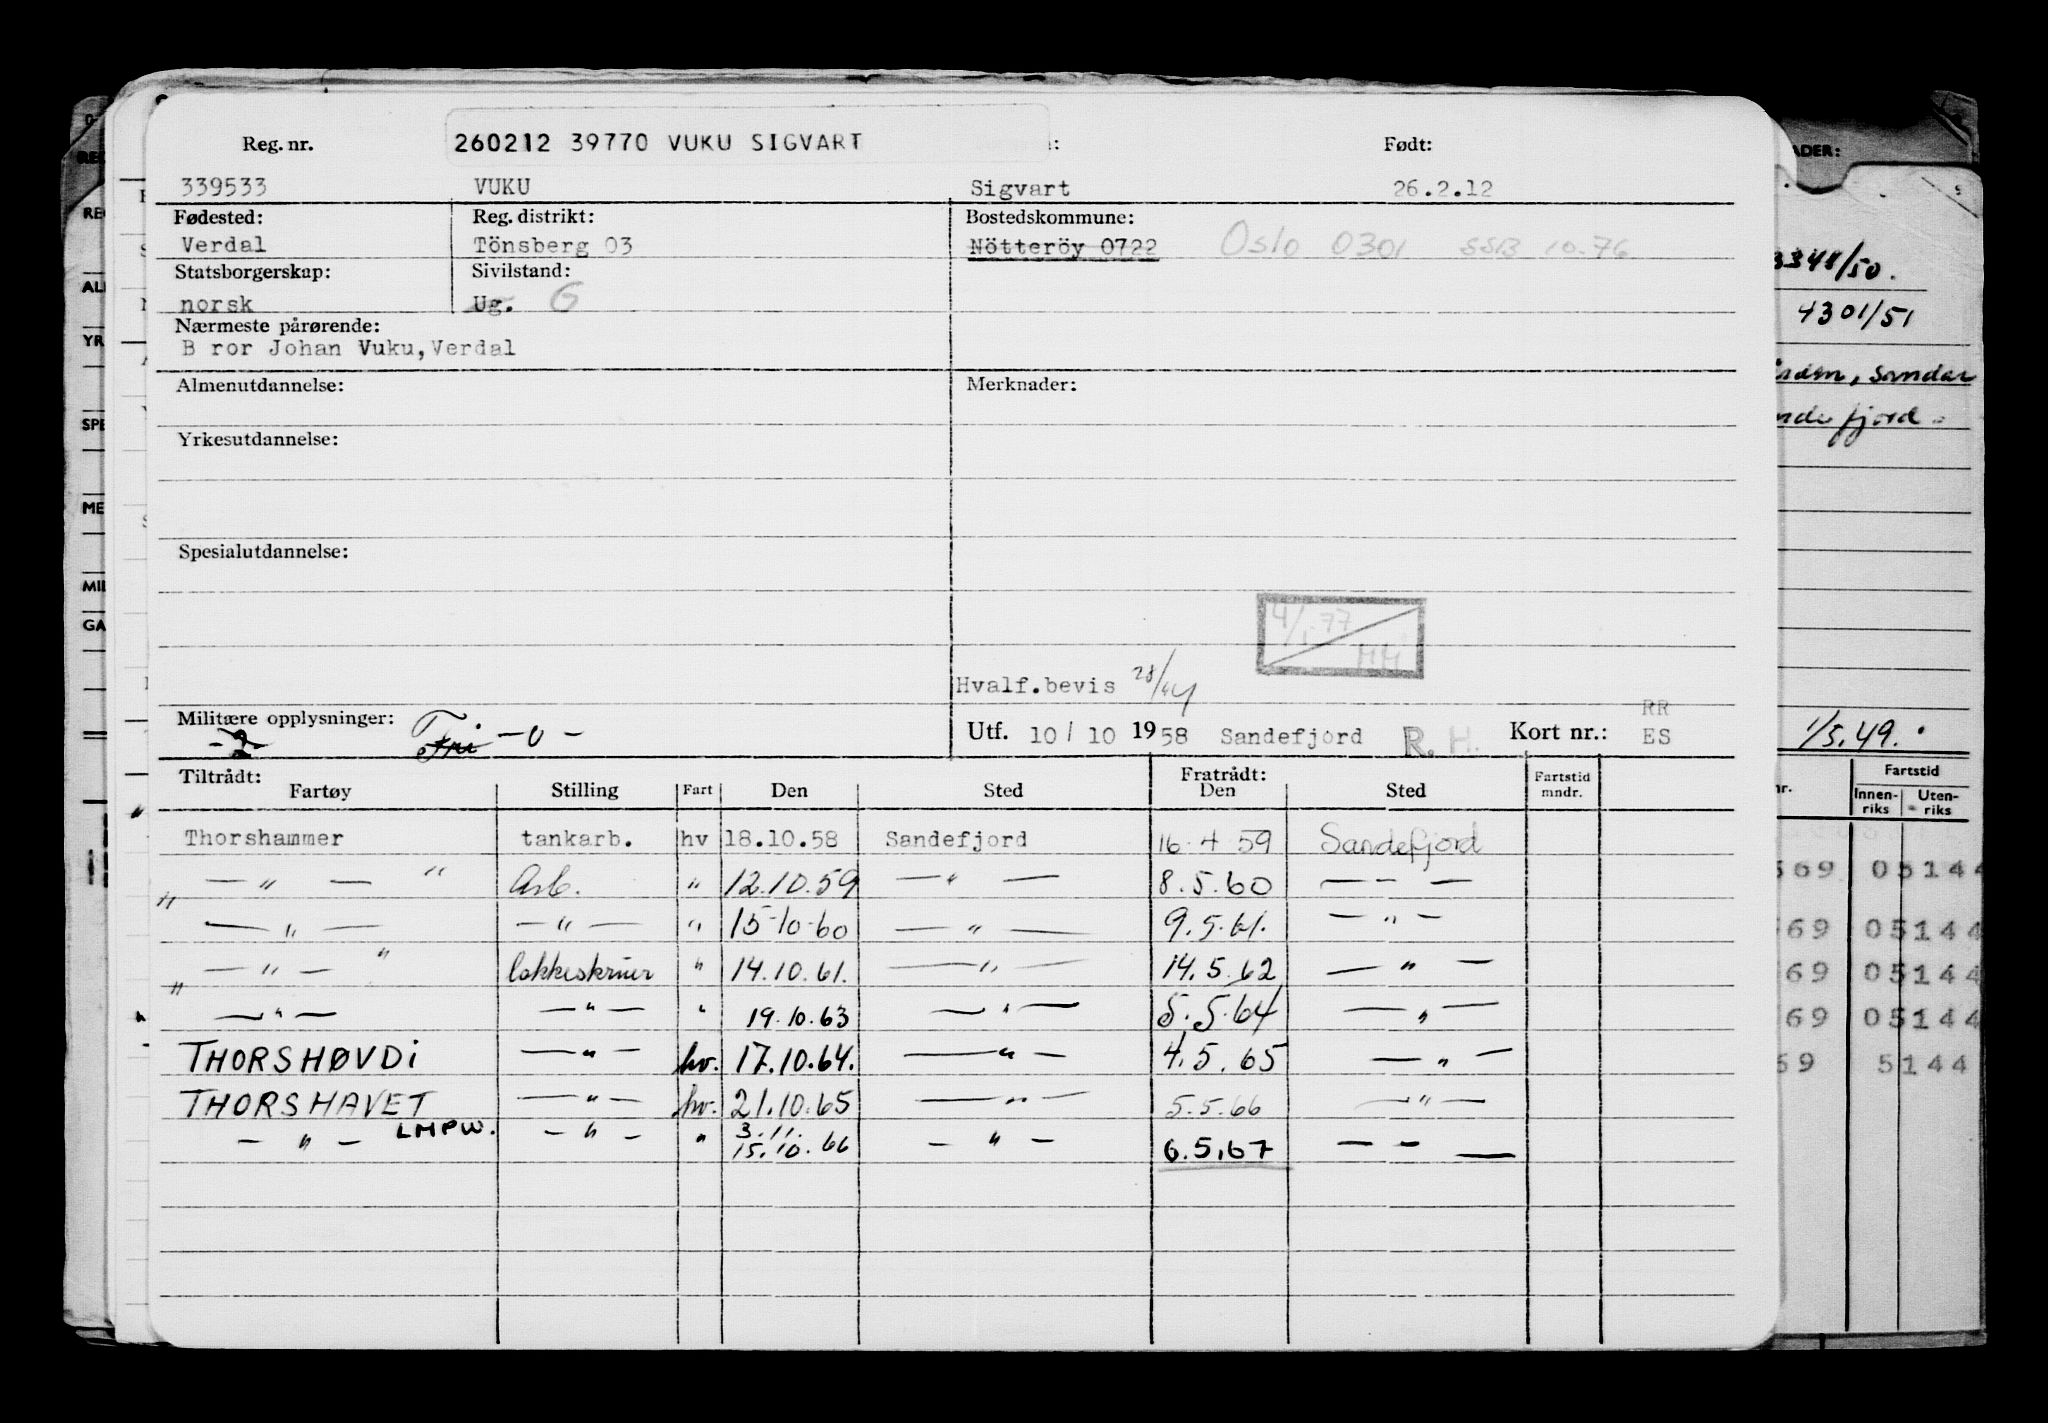 260212 39770 VUKU SIGVART
Reg. nr. Født:
339533 VUKU Sigvart 26.2.12
Fødested: Reg. distrikt: Bostedskommune:
Verdal Tönsberg 03 Nötteröy 0722 Oslo 0301 SSB 10-76
Statsborgerskap: Sivilstand:
norsk Ug. G
Nærmeste pårørende:
B ror Johan Vuku, Verdal
Almenutdannelse: Merknader:
Yrkesutdannelse:
Spesialutdannelse:
4/1-77
HH
Hvalf.bevis
Militære opplysninger: Fri - 0 -
Utf. 10/ 10 1958 Sandefjord R. H. Kort nr.: RR
ES
Tiltrådt: Fratrådt:
Fartøy Stilling Fart Den Sted Den Sted Fartstid mndr.
Thorshammer tankarb. hv 18.10.58 Sandefjord 16-4-59 Sandefjord
— " — " Arb. " 12.10.59 — " — 8.5.60 — - —
— " — — " — " 15-10-60 — " — 9.5.61. — " —
— " — " " 14.10.61. — " — 14.5.62 — " —
— " — — " — " 19.10.63 — " — 5.5.64 — " —
THORSHØVDI — " — hv. 17.10.64. — " — 4.5.65 — " —
THORSHAVET — " — hv. 21.10.65 — " — 5.5.66 — " —
— " — LMPW. — " — " 3.11.
15.10.66 — " — 6.5.67 — - —
ADER:
3348/50.
4301/51
, Sandar
fjord.
1/5.49.
nr. Fartstid
Innen-riks Uten-riks
569 05144
569 05144
69 05144
69 05144
69 5144
REG
ALI
YR
SPE
ME
MIL
GA